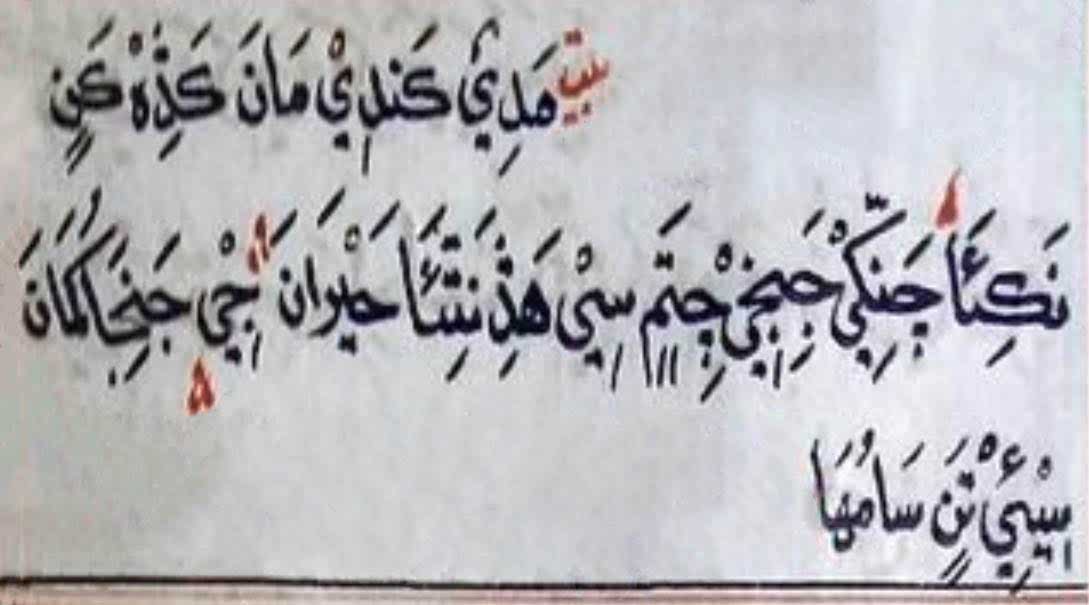 بيت مَدِيْ كَندِيْ مَانَ كَڎِهْ كَنٍ
نَكِئَا جَنِكِّيْ جَنِجِيْ جِتَمِ سِيْ هَڎِ نَتِئَّا حَيْرَانَ جِيْ جَنِجَا كُمَانَ
سِيْئِيْ تَنٍ سَامُهَا